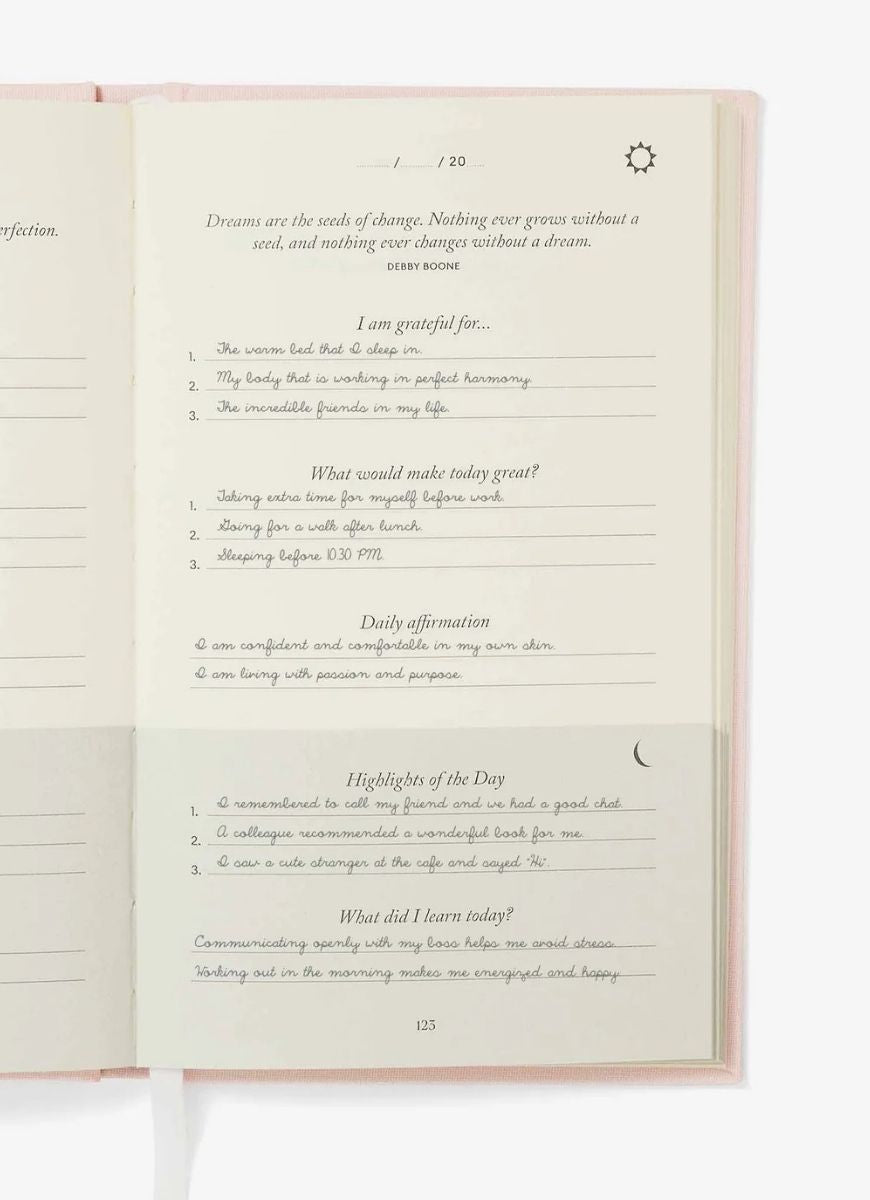 erfection.
/ / 20
Dreams are the seeds of change. Nothing ever grows without a
seed, and nothing ever changes without a dream.
DEBBY BOONE
I am grateful for...
1. The warm bed that I sleep in.
2. My body that is working in perfect harmony.
3. The incredible friends in my life.
What would make today great?
1. Taking extra time for myself before work.
2. Going for a walk after lunch.
3. Sleeping before 10.30 PM.
Daily affirmation
I am confident and comfortable in my own skin.
I am living with passion and purpose.
Highlights of the Day
1. I remembered to call my friend and we had a good chat.
2. A colleague recommended a wonderful book for me.
3. I saw a cute stranger at the cafe and sayed "Hi".
What did I learn today?
Communicating openly with my boss helps me avoid stress.
Working out in the morning makes me energized and happy.
123